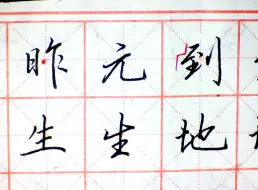 昨元到
生生地